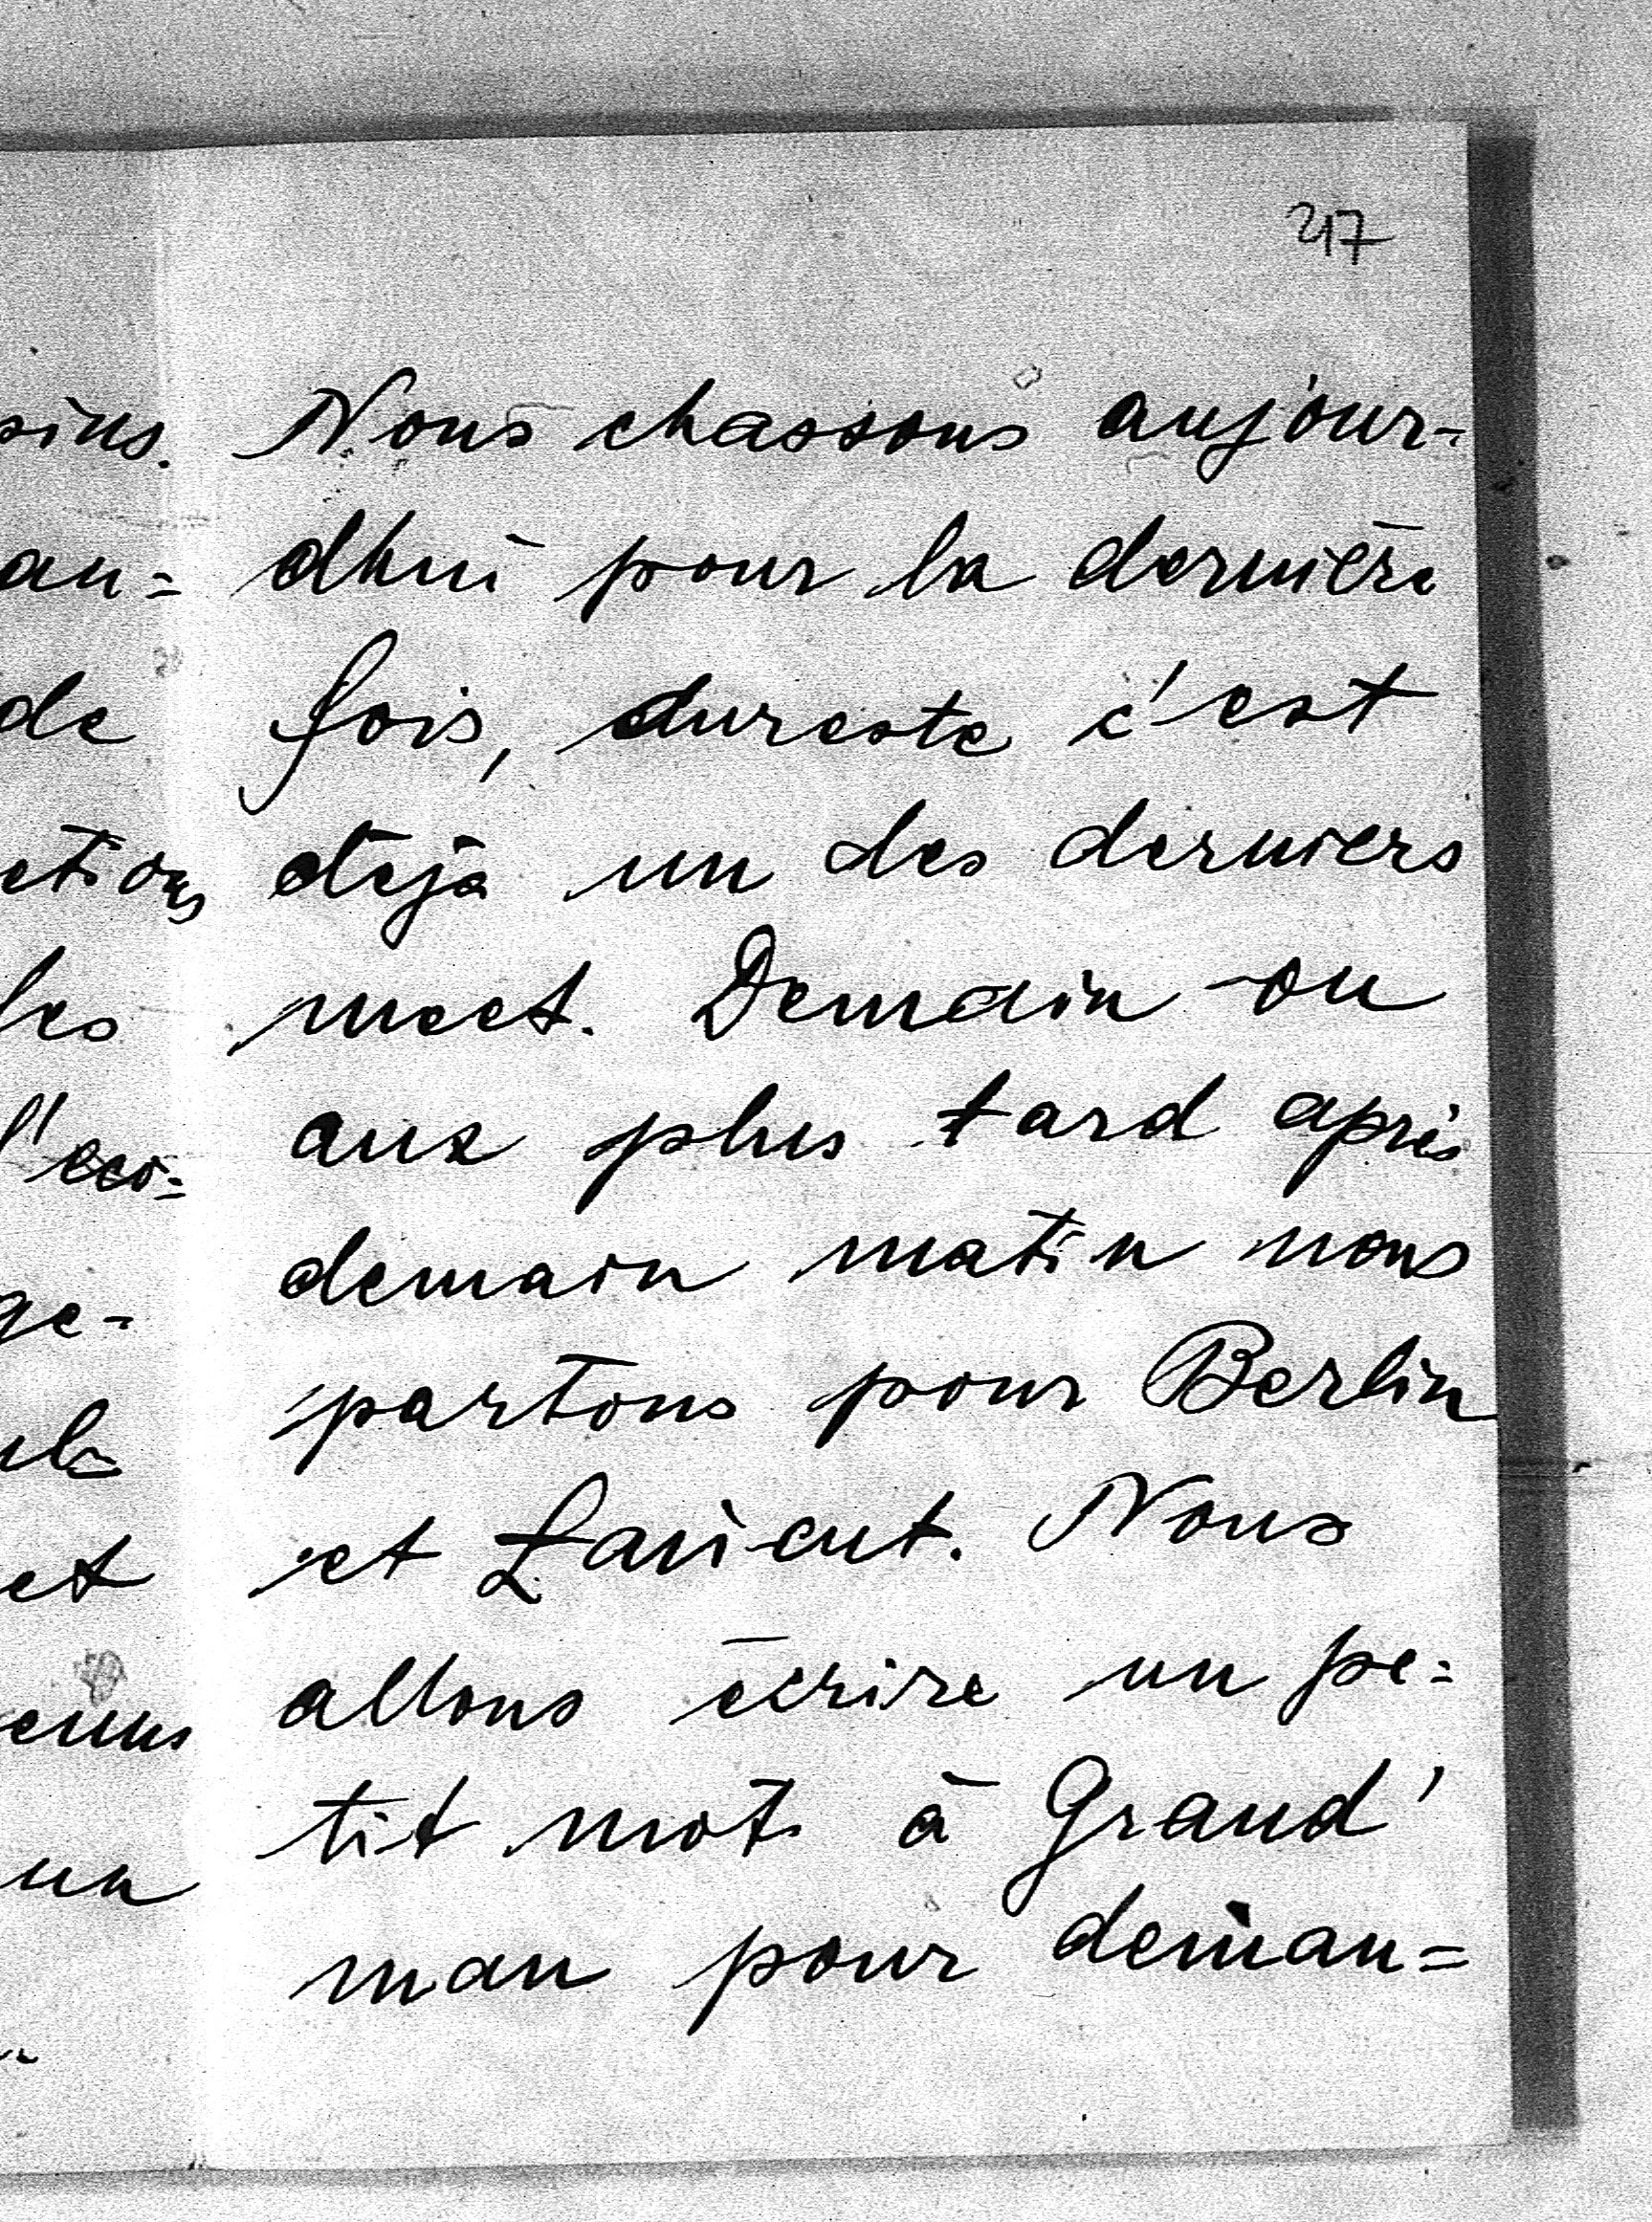 217
Nous chassons aujour-
dhui pour la dernière
fois, dureste c'est
déjà un des derniers
meet. Demain ou
aux plus tard après
demain matin nous
partons pour Berlin
et Łańcut. Nous
allons écrire un pe=
tit mot à Grand'
man pour deman=
sins.
an=
de
ctions
les
l'éco=
ge-
et
enus
un